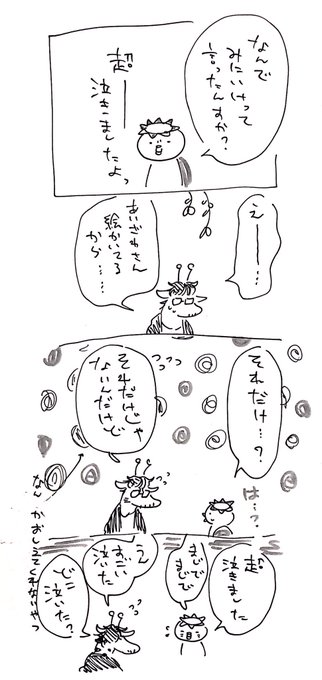 なんで
みにいけって
言ったんすか?
超——
泣きましたよっ
えー——……
あいざわさん
絵かいてる
から……
それだけ…?
それだけじゃ
ないんだけど
は…?
なんかおしえてくれないやつ
超
泣きました
まじで
まじで
え
すごい
泣いた
どこ
泣いた?